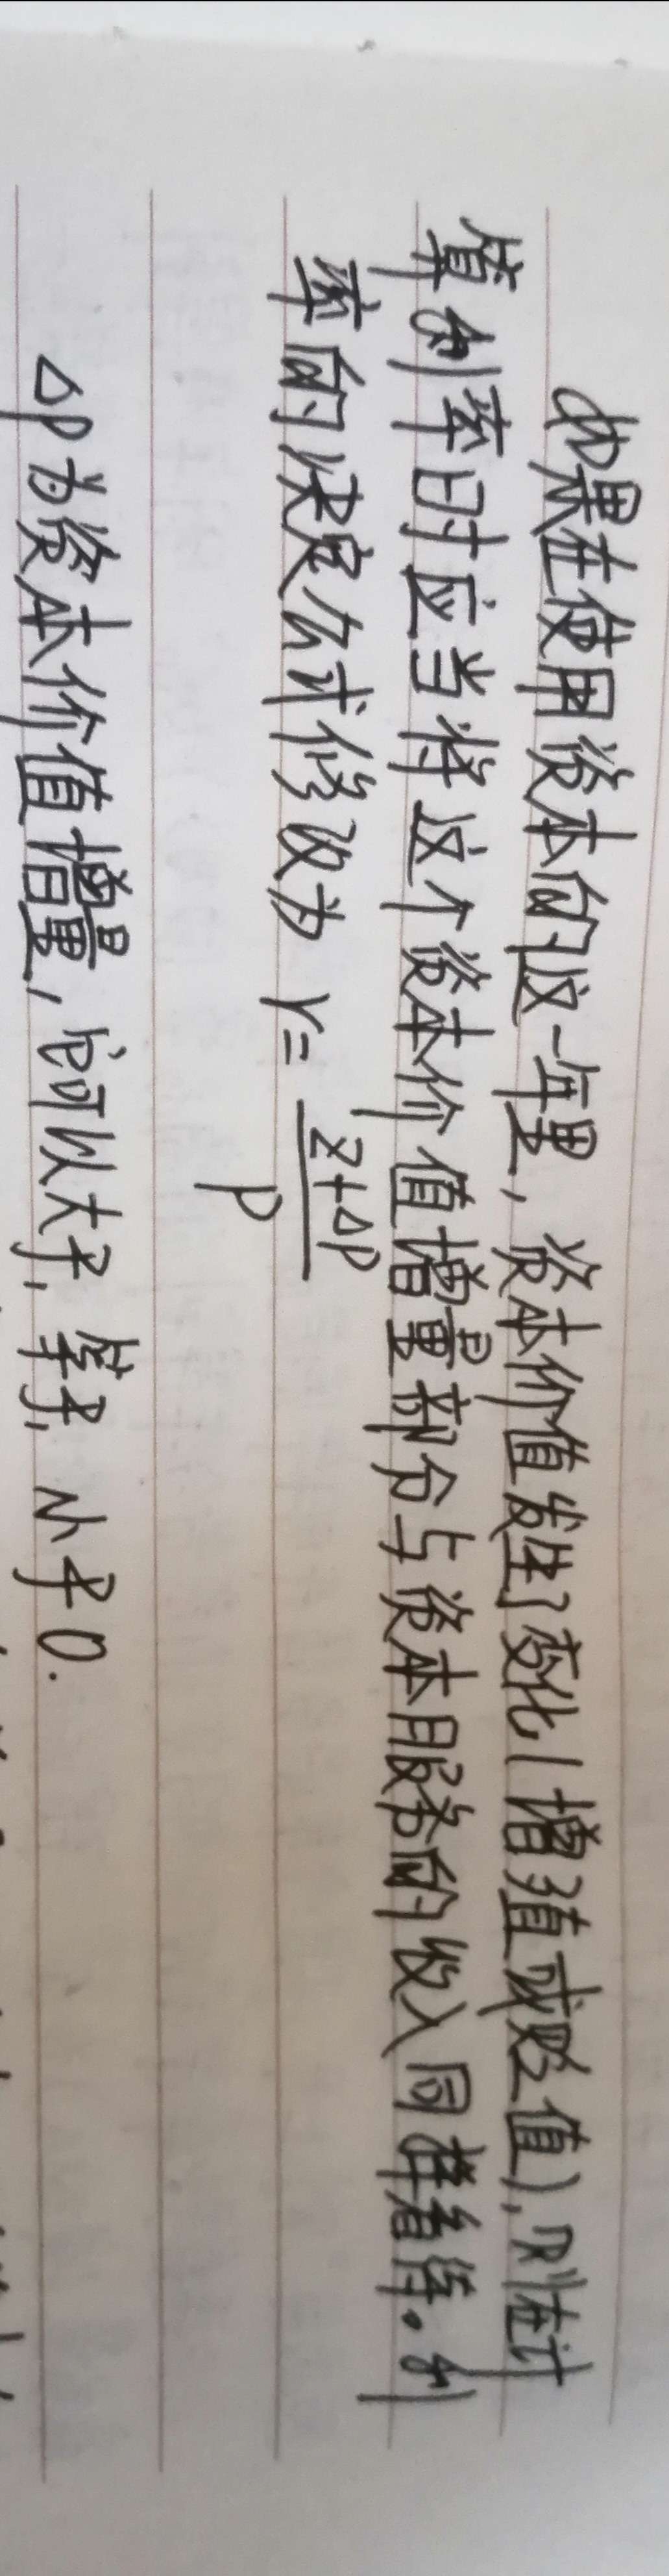 如果在使用资本的这一年里，资本价值发生了变化(增殖或贬值)，则在计
算利率时应当将这个资本价值增量部分与资本服务的收入同样看待。利
率的决定公式修改为 r = (Z+ΔP)/P
ΔP为资本价值增量，它可以大于，等于，小于0.